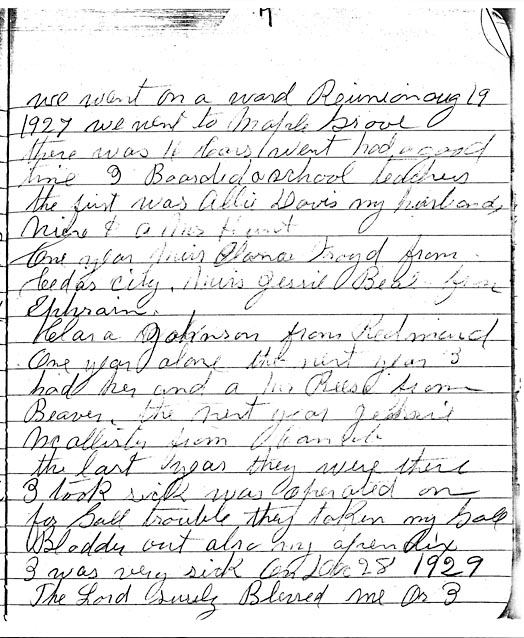 7
we went on a ward Reunion aug 19
1927 we went to Maple Grove
there was 11 Cears went had a good
time I Boarded a school teachers
the first was Allie Davis my husbands
niece & a Mrs Hunt
One year Miss Froyd from
Cedar city. Miss Jessie Beal from
Ephraim.
Clara Johnson from Redmond
One year alone the next year I
had her and a Mr Reese from
Beaver, the next year
McAllister from
the last year they were there
I took sick was operated on
for Gall trouble they taken my Gall
Bladder out also my apendix
I was very sick on Dec 28 1929
The Lord surely Blessed me as I